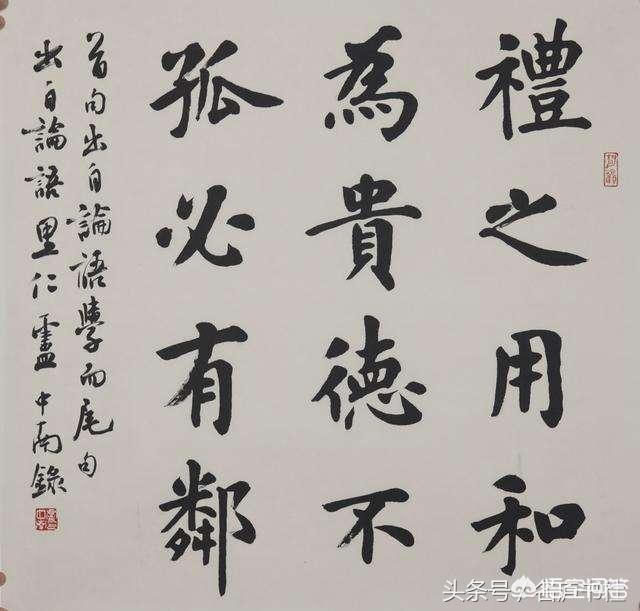 禮之用和
為貴德不
孤必有鄰
首句出自論語學而尾句
出自論語里仁盧中南錄
悟空问答
头条号/